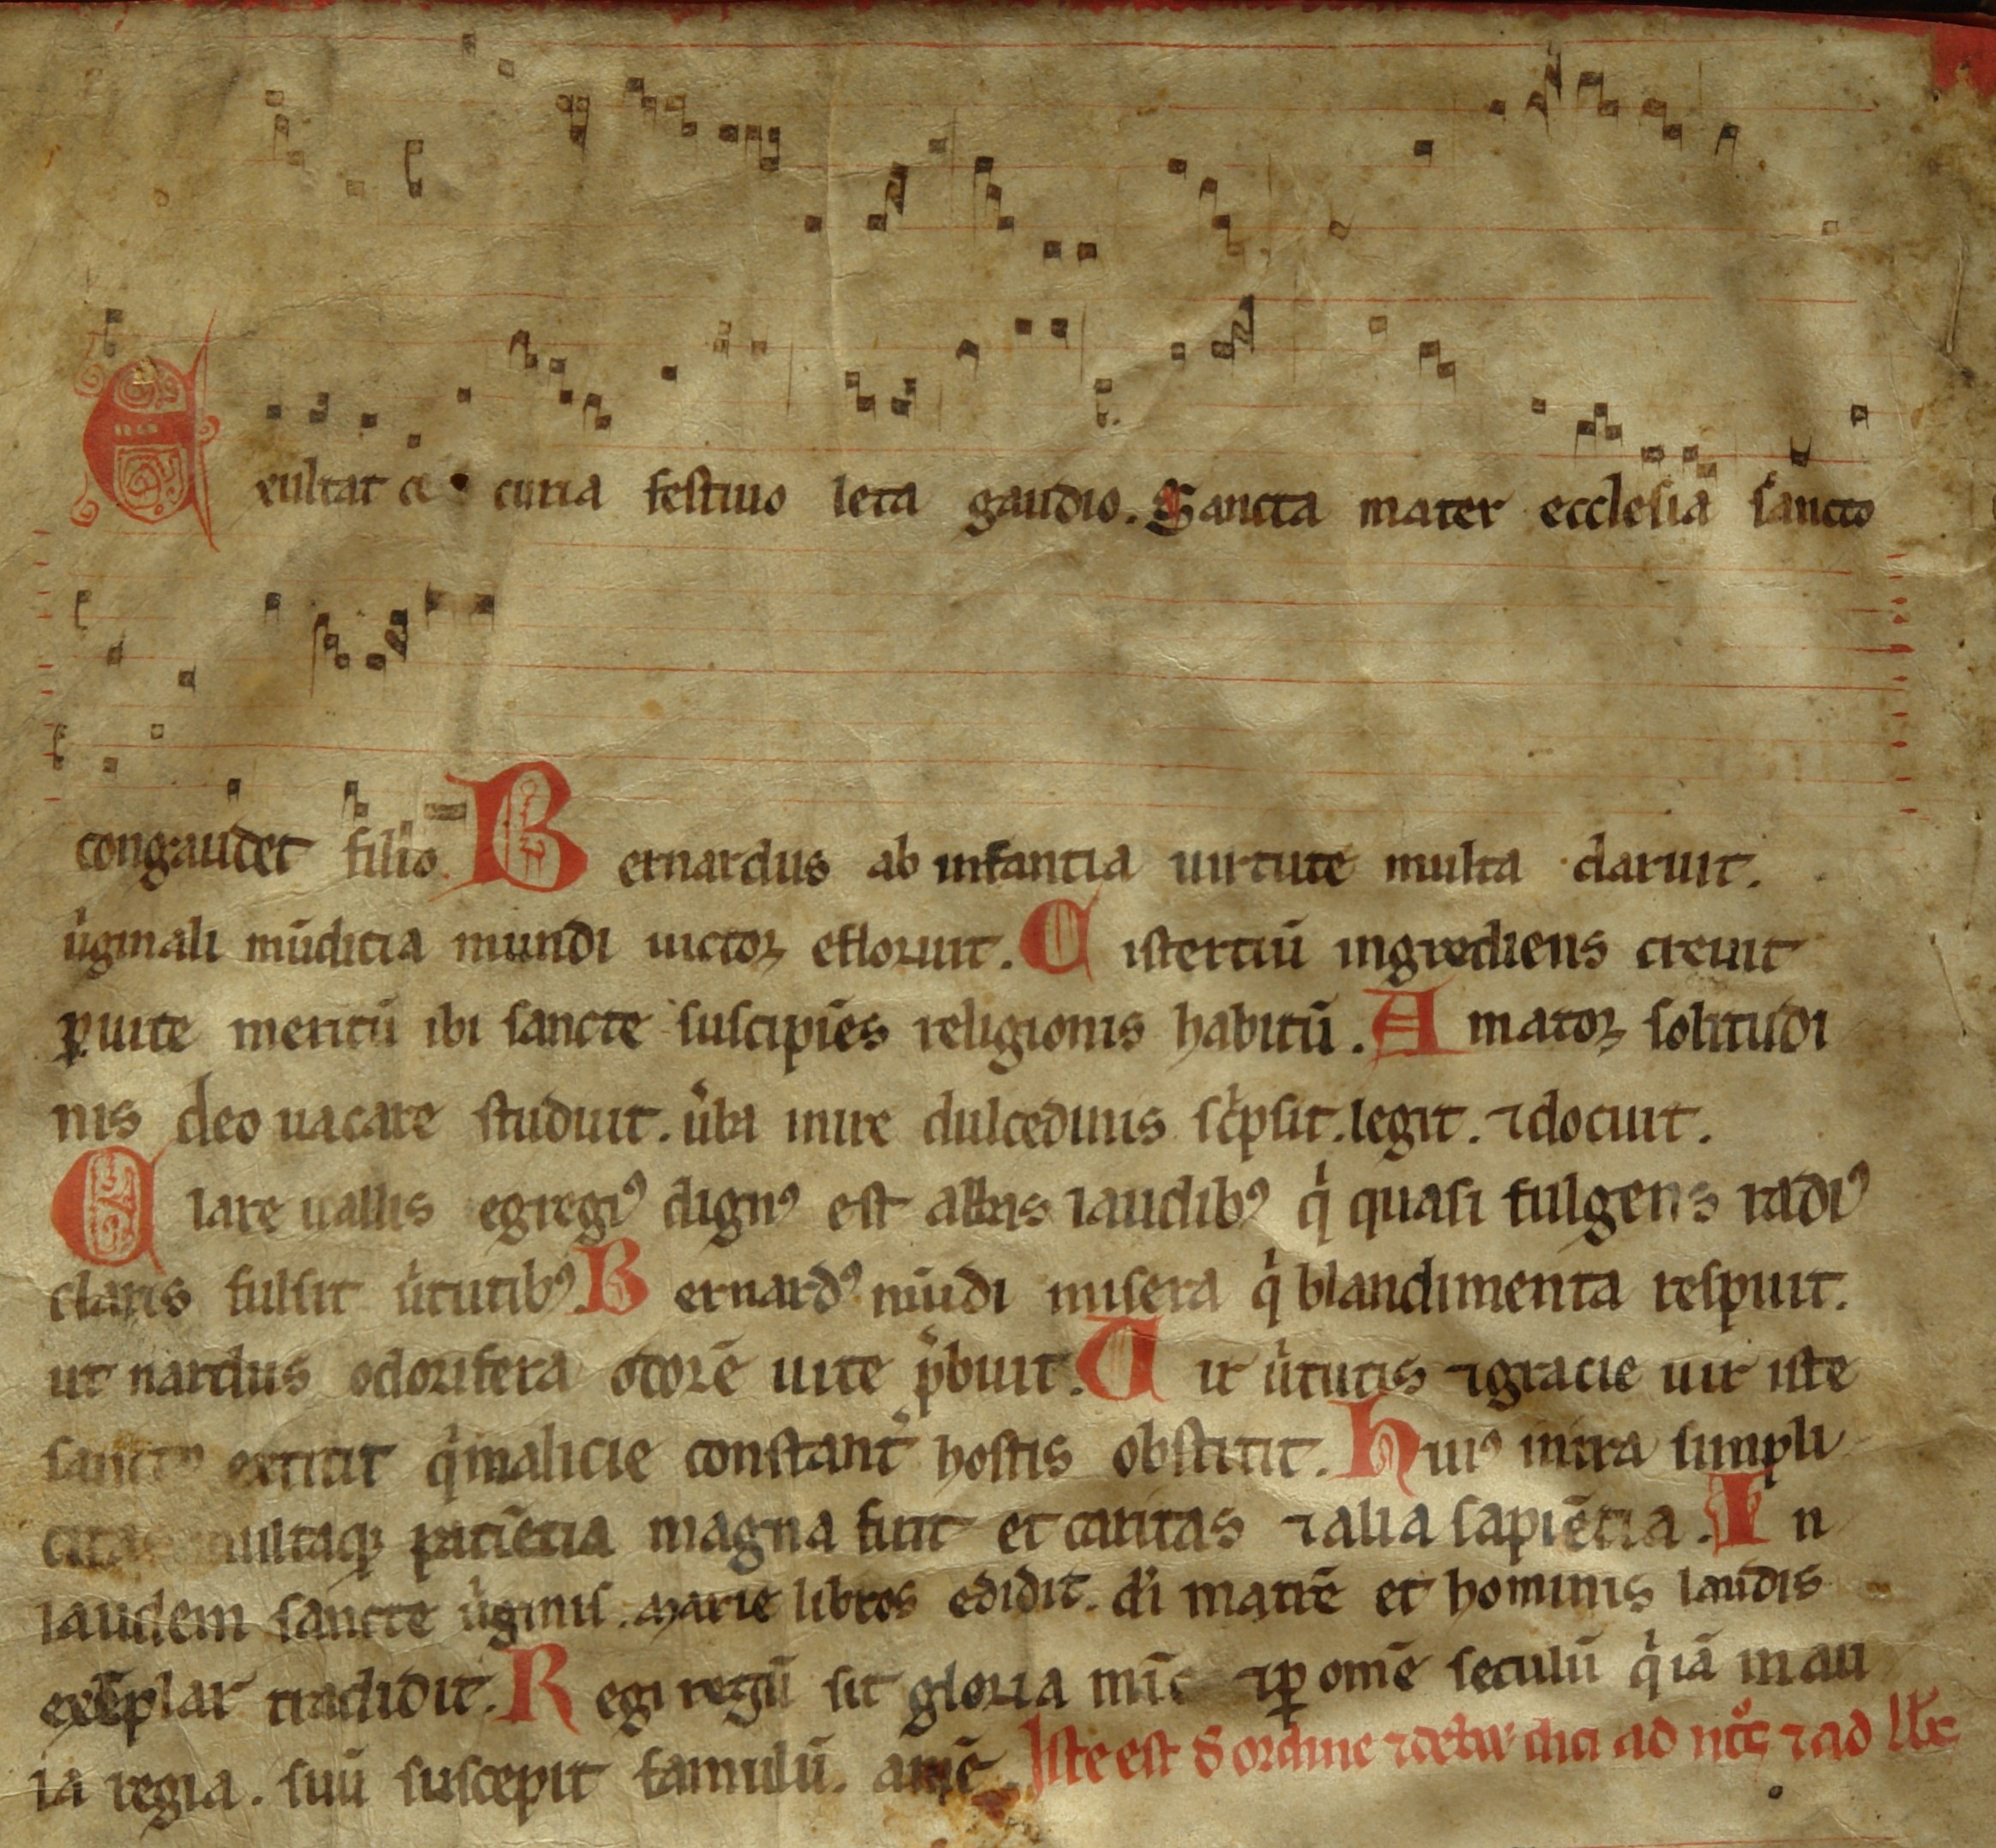 Exultat ce curia festiuo leta gaudio. Sancta mater ecclesia sancto
congaudet filio. Bernardus ab infantia uirtute multa claruit.
u̾ginali mūditia mundi uictor efloruit. Cistertiū ingrediens creuit
ꝑ uite meritū ibi sancte suscipiēs religionis habitū. Amator solitudi
nis deo uacare studuit. u̾ba mire dulcedinis sc̾psit. legit. ⁊ docuit.
Clare uallis egregiꝰ dignꝰ est laudibꝰ qͥ quasi fulgens radiꝰ
claris fulsit u̾tutibꝰ. Bernardꝰ mūdi misera qͥ blandimenta respuit.
ut nardus odorifera odorē uite p̾buit. Uir u̾tutis ⁊ gracie uir iste
sanctꝰ extitit qͥ malicie constant̾ hostis obstitit. Huiꝰ mira simpli
citas multaqꝫ patiētia magna fuit et caritas ⁊ alia sapiētia. In
laudem sancte u̾ginis. marie libros edidit. di matrē et hominis laudis
exēplar tradidit. Regi regū sit gloria nūc ⁊ ꝑ omē seculū qͥ iā in au
la regia. suū suscepit famulū. amē. Iste est d̾ ordine ⁊ debet dici ad ⁊ ad